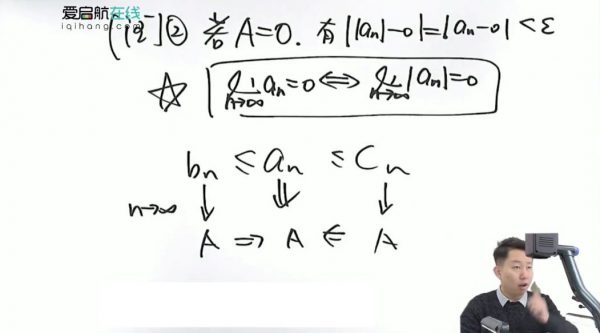 爱启航在线
iqihang.com
[注]② 若A=0. 有||an|-0|=|an-0|<ε
☆ lim n→∞ an=0 ⟺ lim n→∞ |an|=0
bn ≤ an ≤ Cn
n→∞ ↓ ⇓ ↓
A ⇒ A ⇐ A